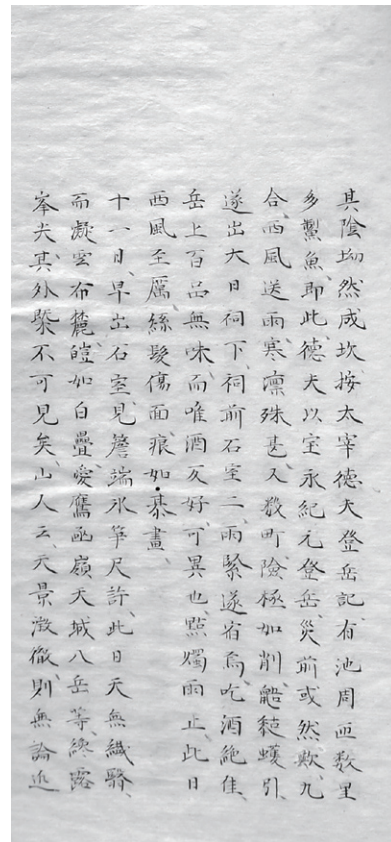 其陰坳然成坎、按太宰德夫登岳記、有池周匝数里
多鱉魚、即此、德夫以宝永紀元登岳、災前或然歟、九
合、西風送雨、寒凛殊甚、又数町、險極如削、鼯猱蠖引
遂出大日祠下、祠前石室二、雨緊遂宿焉、吃酒絶佳、
岳上百品無味、而唯酒反好、可異也、點燭雨止、此日
西風至厲、絲髮傷面、痕如棊畫、
十一日、早出石室、見簷端氷筆尺許、此日天無纖翳、
而凝雲布麓、皚如白疊、愛鷹函嶺天城八岳等、纔露
峯尖、其外槩不可見矣、山人云、天景澂徹、則無論近